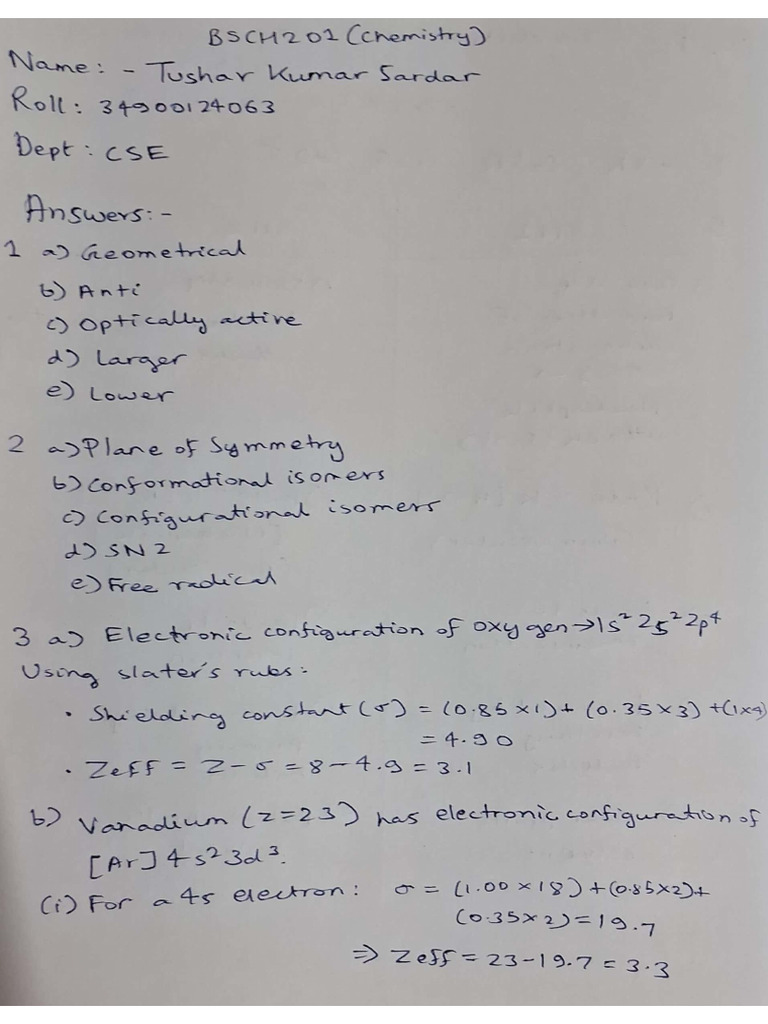 BSCH201 (Chemistry)
Name: - Tushar Kumar Sardar
Roll: 34900124063
Dept: CSE
Answers:-
1 a) Geometrical
b) Anti
c) Optically active
d) Larger
e) Lower
2 a) Plane of Symmetry
b) Conformational isomers
c) Configurational isomers
d) SN2
e) Free radical
3 a) Electronic configuration of oxygen → 1s² 2s² 2p⁴
Using slater's rules:
• Shielding constant (σ) = (0.85 × 1) + (0.35 × 3) + (1×4)
= 4.90
• Zeff = Z - σ = 8 - 4.9 = 3.1
b) Vanadium (z=23) has electronic configuration of
[Ar] 4s² 3d³.
(i) For a 4s electron: σ = (1.00 × 18) + (0.85×2) +
(0.35×2) = 19.7
⇒ Zeff = 23 - 19.7 = 3.3